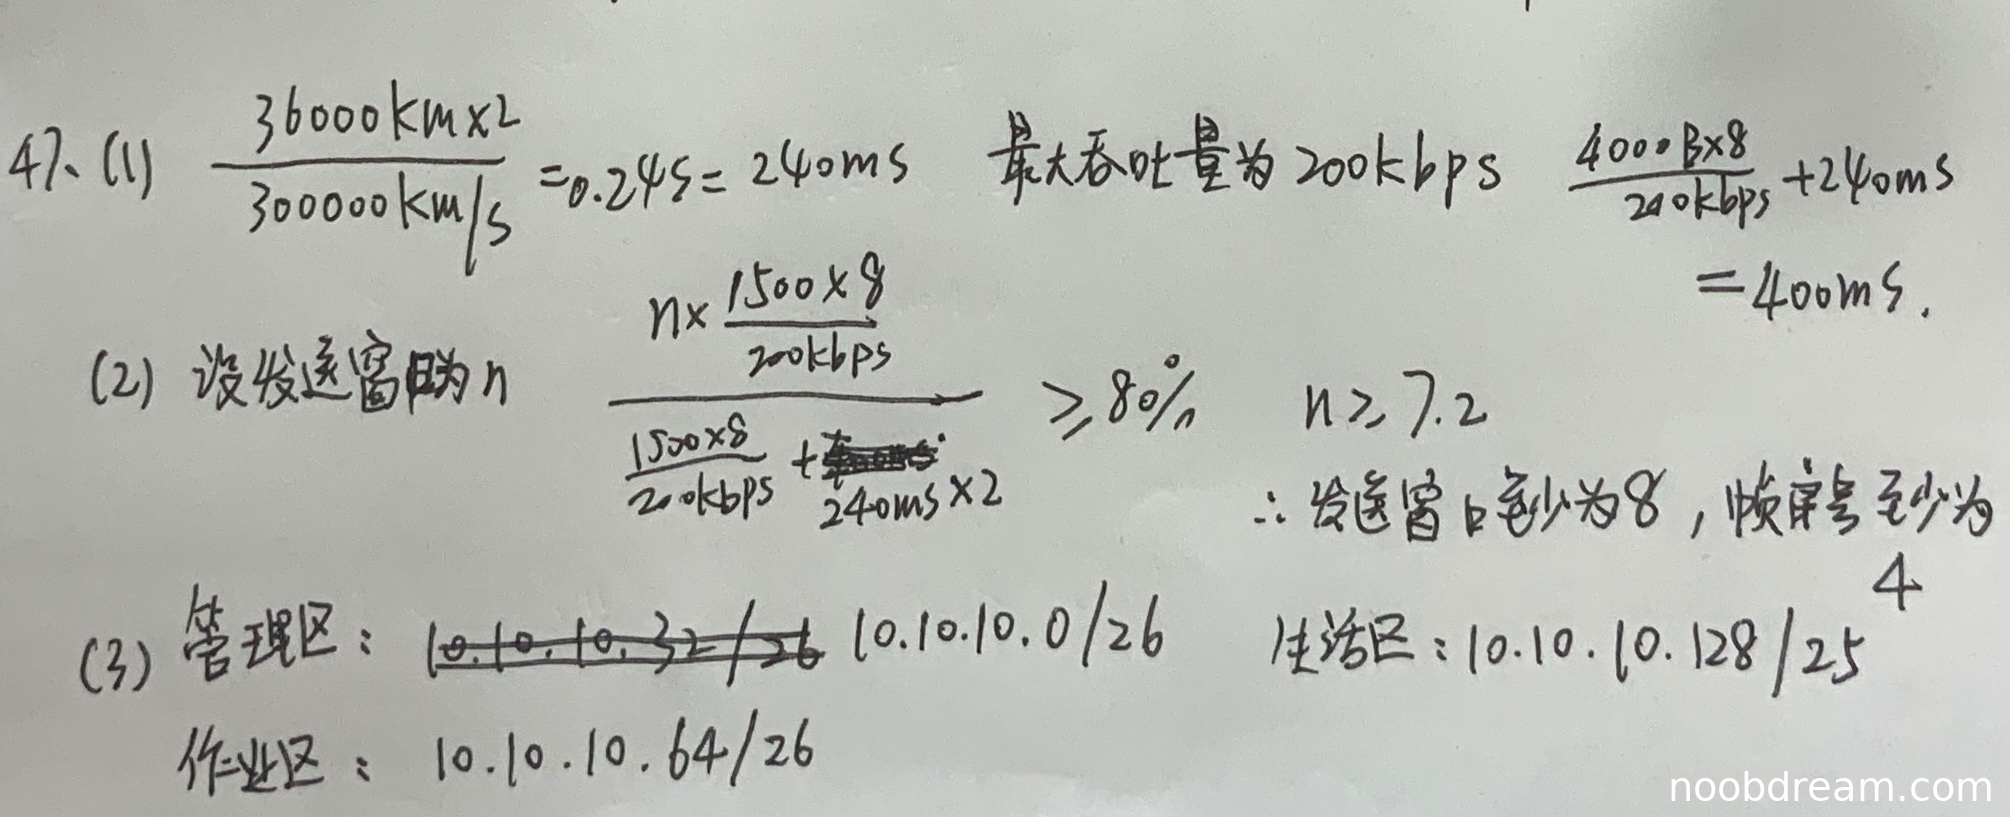 47、(1) 36000km×2 / 300000km/s = 0.24s = 240ms 最大吞吐量为200kbps 4000B×8 / 200kbps + 240ms
= 400ms.
(2) 设发送窗口为n n× 1500×8 / 200kbps / 1500×8 / 200kbps + 240ms×2 ≥ 80% n ≥ 7.2
∴ 发送窗口至少为8, 帧序号至少为
4
(3) 管理区: 10.10.10.32/26 10.10.10.0/26 生活区: 10.10.10.128/25
作业区: 10.10.10.64/26
noobdream.com